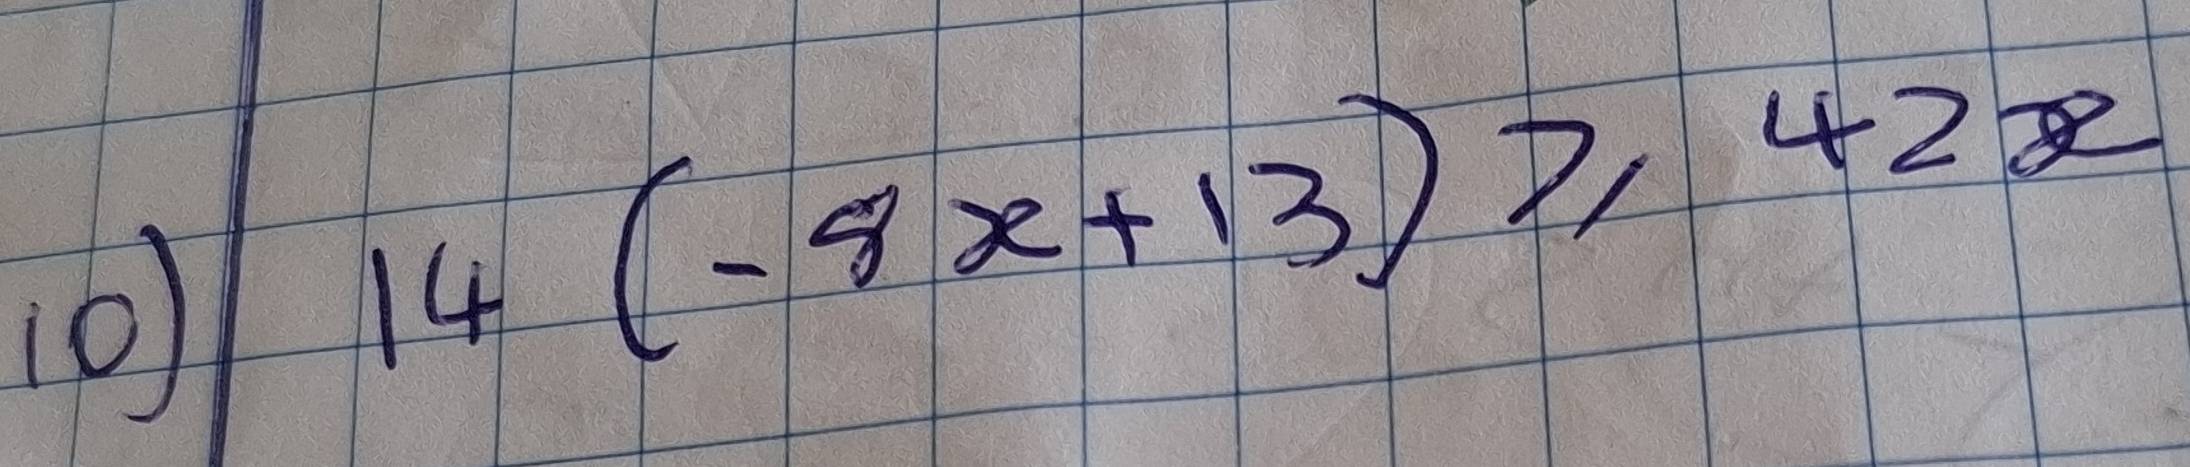 10) 14 (-8x+13) ⩾ 42x